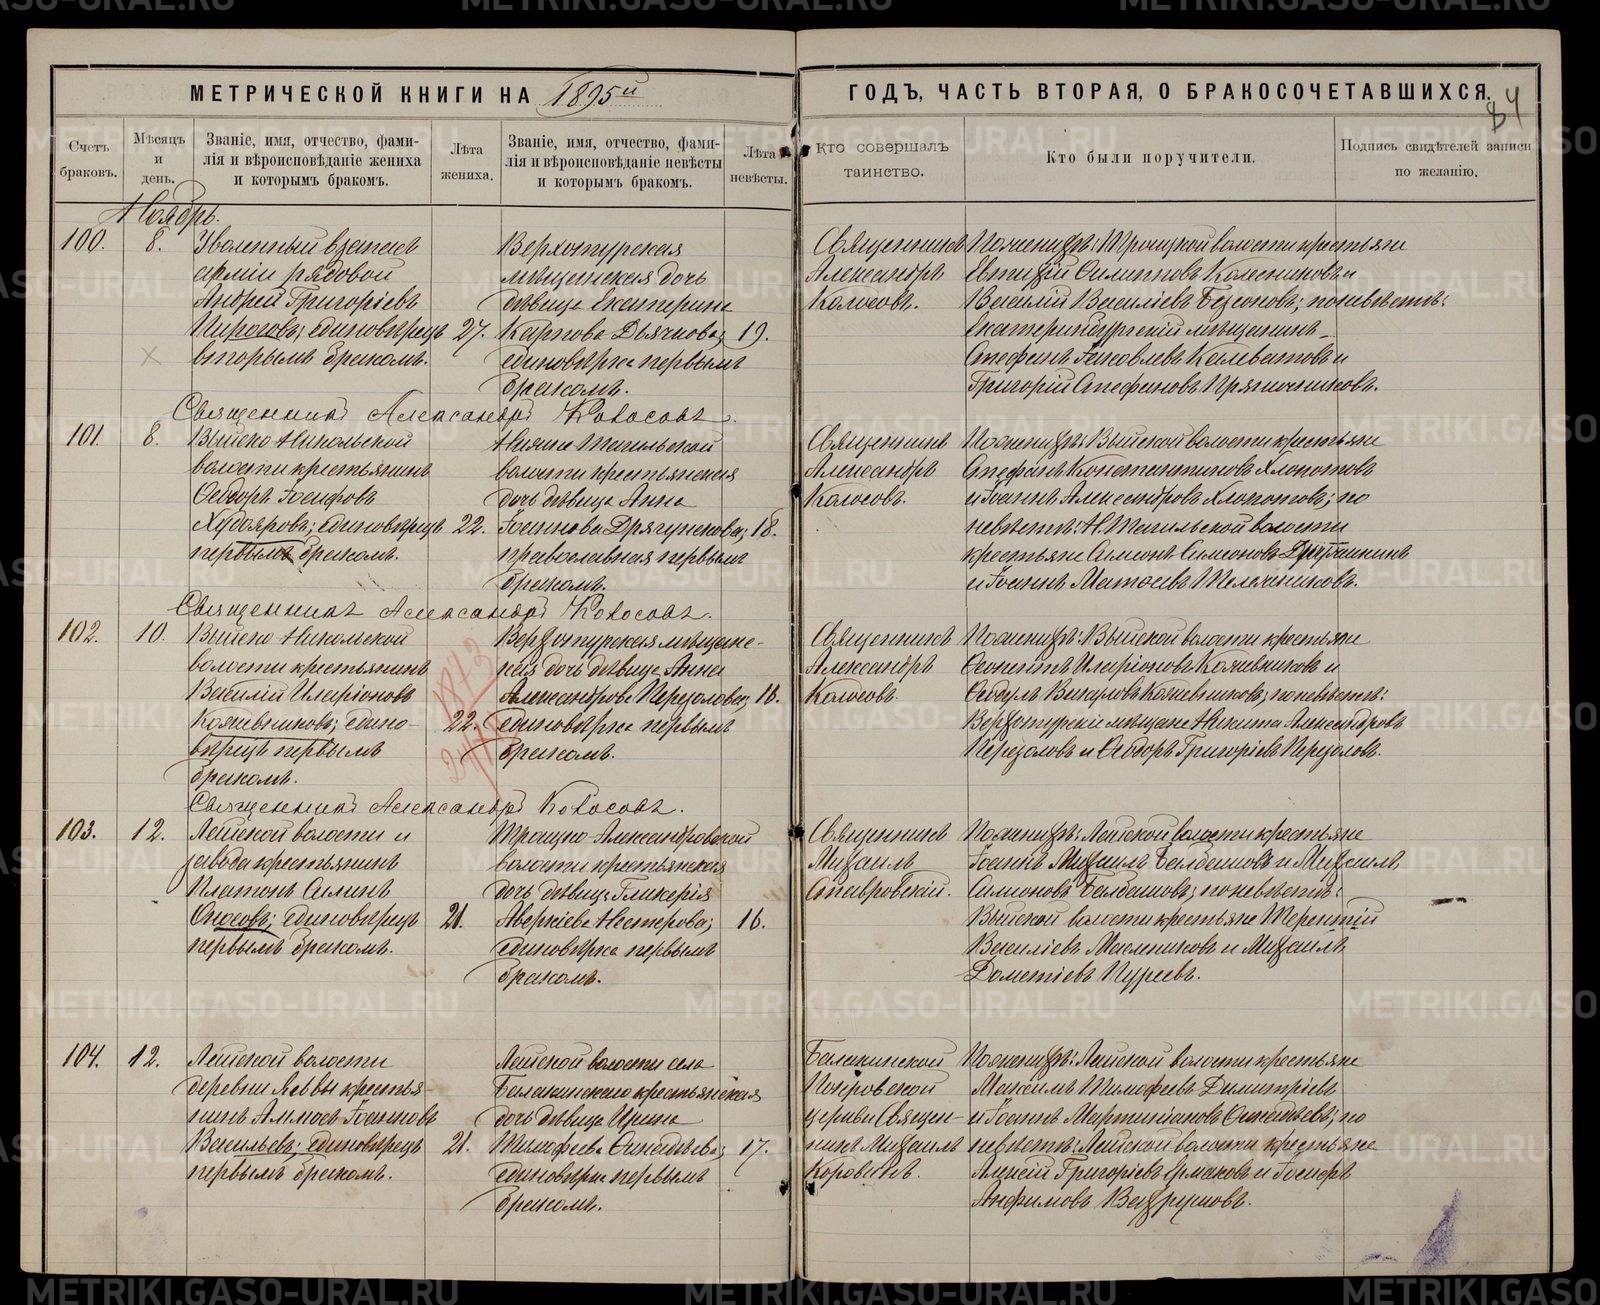 МЕТРИЧЕСКОЙ КНИГИ НА 1895й
ГОДЪ, ЧАСТЬ ВТОРАЯ, О БРАКОСОЧЕТАВШИХСЯ.
84
Счетъ браковъ.
Мѣсяцъ и день.
Званіе, имя, отчество, фами-
лія и вѣроисповѣданіе жениха
и которымъ бракомъ.
Лѣта жениха.
Званіе, имя, отчество, фами-
лія и вѣроисповѣданіе невѣсты
и которымъ бракомъ.
Лѣта невѣсты.
Кто совершалъ
таинство.
Кто были поручители.
Подпись свидѣтелей записи
по желанію.
Ноябрь.
100.
8.
Уволенный въ запасъ
арміи рядовой
Андрей Григоріевъ
единовѣрецъ
вторымъ бракомъ.
27.
Верхотурская
мѣщанская дочь
дѣвица Екатерина
Карпова Дьячкова;
единовѣрка первымъ
бракомъ.
19.
Священникъ
Александръ
Колосовъ.
По женихѣ: Троицкой волости крестьяне
Евтихій Филипповъ Колесниковъ и
Василій Васильевъ Безсоновъ; по невѣстѣ:
Екатеринбургскій мѣщанинъ
Стефанъ Іаковлевъ и
Григорій Стефановъ Пряничниковъ.
Священникъ Александръ Колосовъ.
101.
8.
Выйско-Никольской
волости крестьянинъ
Ѳеодоръ Іосифовъ
Худояровъ; единовѣрецъ
первымъ бракомъ.
22.
Нижне-Тагильской
волости крестьянская
дочь дѣвица Анна
Іоаннова Дрягункова;
православная первымъ
бракомъ.
18.
Священникъ
Александръ
Колосовъ.
По женихѣ: Выйской волости крестьяне
Стефанъ Константиновъ Хлопотовъ
и Іоаннъ Александровъ Хлопотовъ; по
невѣстѣ: Н.Тагильской волости
крестьяне Симеонъ Симоновъ
и Іоаннъ Матѳеевъ
Священникъ Александръ Колосовъ.
102.
10.
Выйско-Никольской
волости крестьянинъ
Василій Иларіоновъ
Кожевниковъ; едино-
вѣрецъ первымъ
бракомъ.
22.
Верхотурская мѣщанс-
кая дочь дѣвица Анна
Александрова Перезолова;
единовѣрка первымъ
бракомъ.
16.
Священникъ
Александръ
Колосовъ.
По женихѣ: Выйской волости крестьяне
Иларіоновъ Кожевниковъ и
Викуловъ Кожевниковъ; по невѣстѣ:
Верхотурскіе мѣщане Никита Александровъ
Перезоловъ и Ѳеодоръ Григоріевъ Перезоловъ.
Священникъ Александръ Колосовъ.
103.
12.
Лайской волости и
завода крестьянинъ
Платонъ Силинъ
единовѣрецъ
первымъ бракомъ.
21.
Троицко-Александровской
волости крестьянская
дочь дѣвица Гликерія
Аверкіева Нестерова;
единовѣрка первымъ
бракомъ.
16.
Священникъ
Михаилъ
Ставровскій.
По женихѣ: Лайской волости крестьяне
Іоаннъ Балбашовъ и Михаилъ
Симоновъ Балбашовъ; по невѣстѣ:
Выйской волости крестьяне Терентій
Василіевъ Масленниковъ и Михаилъ
Дометіевъ Пуреевъ.
104.
12.
Лайской волости
деревни крестья-
нинъ Іоанновъ
Васильевъ; единовѣрецъ
первымъ бракомъ.
21.
Лайской волости села
Балакинскаго крестьянская
дочь дѣвица Ирина
Тимофеева
единовѣрка первымъ
бракомъ.
17.
Балакинской
Покровской
церкви Священ-
никъ Михаилъ
Коровинъ.
По женихѣ: Лайской волости крестьяне
Максимъ Тимофеевъ Димитріевъ
и Іоаннъ Мартиніановъ по
невѣстѣ: Лайской волости крестьяне
Алексій Григоріевъ Ермаковъ и Іосифъ
Анфимовъ Вахрушовъ.
METRIKI.GASO-URAL.RU